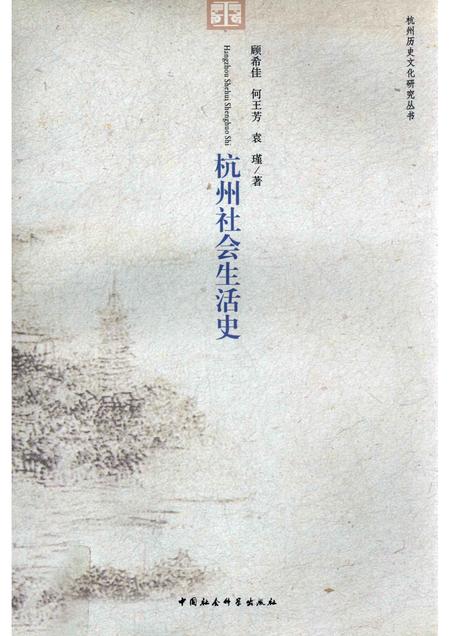 杭州历史文化研究丛书
顾希佳 何王芳 袁 瑾／著
Hangzhou Shehui Shenghuo Shi
杭州社会生活史
中国社会科学出版社